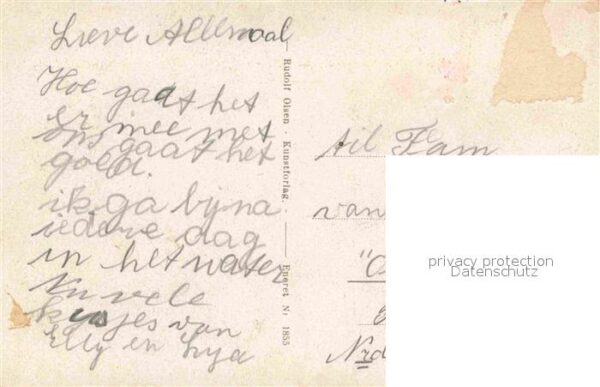 Lieve Allemaal
Hoe gaat het
er mee met
ons gaat het
goed.
ik ga bijna
iedere dag
in het water
Nu vele
kusjes van
Elly en
Rudolf Olsen · Kunstforlag. Eneret Nr 1855
til Fam
van
"O
Nrd
privacy protection
Datenschutz